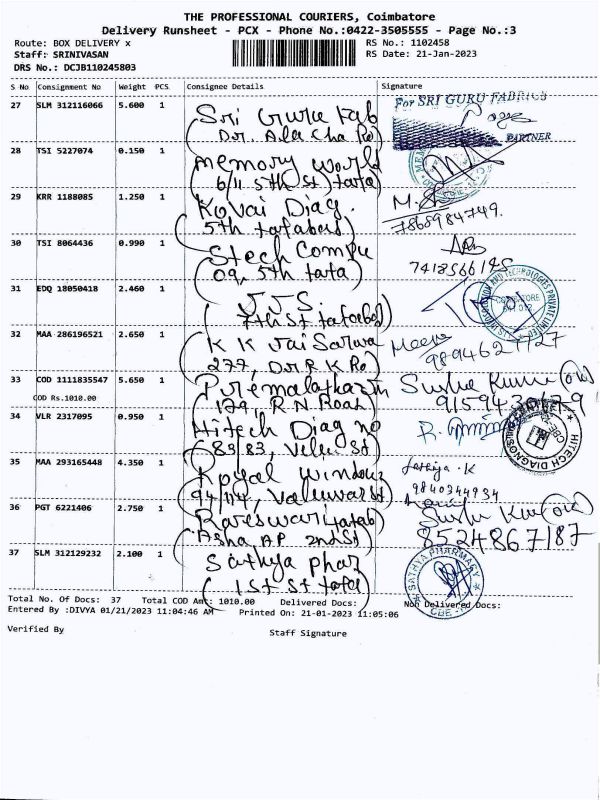 THE PROFESSIONAL COURIERS, Coimbatore
Delivery Runsheet - PCX - Phone No.:0422-3505555 - Page No.:3
Route: BOX DELIVERY x
RS No.: 1102458
Staff: SRINIVASAN
RS Date: 21-Jan-2023
DRS No.: DCJB110245803
S No Consignment No Weight PCS Consignee Details Signature
27 SLM 312116066 5.600 1 Sri Guru Fab
For SRI GURU FABRICS
PARTNER
28 TSI 5227074 0.150 1 memory world
(6/11 5th St) tata)
29 KRR 1188085 1.250 1 Kovai Diag.
(5th tatabad)
7868984749.
30 TSI 8064436 0.990 1 Stech Compu
(09, 5th tata)
7418566145
31 EDQ 18050418 2.460 1 JJS.
(7th St tatabad)
32 MAA 286196521 2.650 1 K K Jai Sarwa
Meena
(277, Dr R K Ro)
9894627727
33 COD 1111835547 5.650 1
COD Rs.1010.00
(129, R N Road)
9159430179
34 VLR 2317095 0.950 1 Hitech Diag no
(8383, Velu St)
HITECH DIAGNOS
35 MAA 293165448 4.350 1 Royal windows
9840344934
36 PGT 6221406 2.750 1 Rareswari tatab
(Asha AP 2nd St)
8524867187
37 SLM 312129232 2.100 1 Sathya phar
(1st St tata)
SATHYA PHARMACY
CBE
Total No. Of Docs: 37 Total COD Amt: 1010.00 Delivered Docs: Non Delivered Docs:
Entered By :DIVYA 01/21/2023 11:04:46 AM Printed On: 21-01-2023 11:05:06
Verified By
Staff Signature